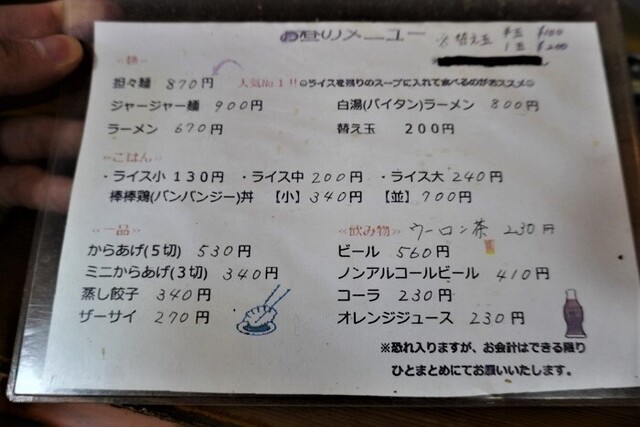 お昼のメニュー
※替え玉 半玉 ¥100
1玉 ¥200
≪麺≫
担々麺 870円 人気No.1!!☺ライスを残りのスープに入れて食べるのがオススメ☺
ジャージャー麺 900円 白湯(パイタン)ラーメン 800円
ラーメン 670円 替え玉 200円
≪ごはん≫
・ライス小 130円 ・ライス中 200円 ・ライス大 240円
棒棒鶏(バンバンジー)丼 【小】 340円 【並】 700円
≪一品≫
からあげ(5切) 530円
ミニからあげ(3切) 340円
蒸し餃子 340円
ザーサイ 270円
≪飲み物≫ ウーロン茶 230円
ビール 560円
ノンアルコールビール 410円
コーラ 230円
オレンジジュース 230円
※恐れ入りますが、お会計はできる限り
ひとまとめにてお願いいたします。